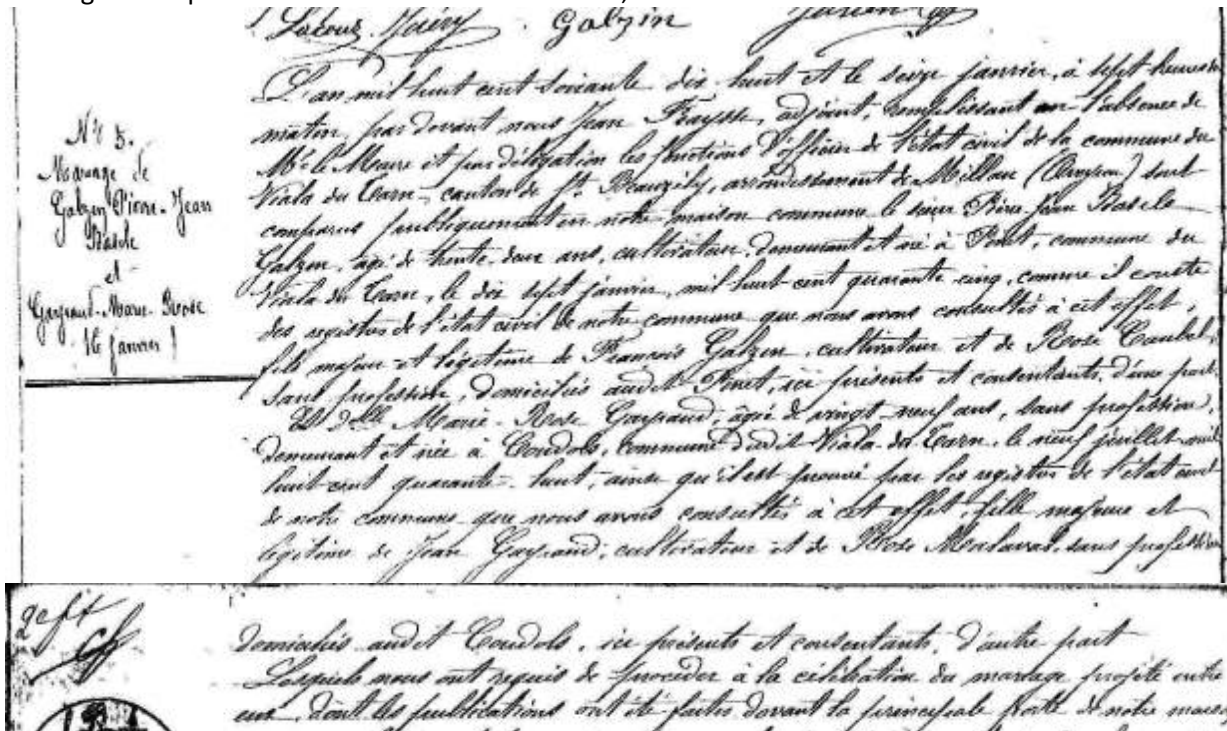 Galzin
L'an mil huit cent soixante dix huit et le seize janvier, à sept heures du
matin, par devant nous Jean Fraysse, adjoint, remplissant en l'absence de
Mr le Maire et par délégation les fonctions d'officier de l'état civil de la commune du
Viala du Tarn, canton de St. Beauzély, arrondissement de Millau (Aveyron) sont
comparus publiquement en notre maison commune le sieur Pierre Jean Basile
Galzin, agé de trente deux ans, cultivateur, demeurant et né à Pinet, commune du
Viala du Tarn, le dix sept janvier, mil huit cent quarante cinq, comme il conste
des registres de l'état civil de notre commune que nous avons consultés à cet effet,
fils majeur et légitime de François Galzin, cultivateur et de Rose
sans profession, domiciliés audit Pinet, ici présents et consentants, d'une part.
Et Dlle Marie-Rose Gayraud, agée de vingt-neuf ans, sans profession,
demeurant et née à Coudols, commune dudit Viala-du-Tarn, le neuf juillet mil
huit cent quarante-huit, ainsi qu'il est prouvé par les registres de l'état civil
de notre commune que nous avons consultés à cet effet, fille majeure et
légitime de Jean Gayraud, cultivateur et de Rose Malaval, sans profession
Nº 5.
Mariage de
Galzin Pierre-Jean
Basile
et
Gayraud-Marie-Rose
16 janvier
domiciliés audit Coudols, ici présents et consentants, d'autre part
Lesquels nous ont requis de procéder à la célébration du mariage projeté entre
eux, dont les publications ont été faites devant la principale porte de notre maison